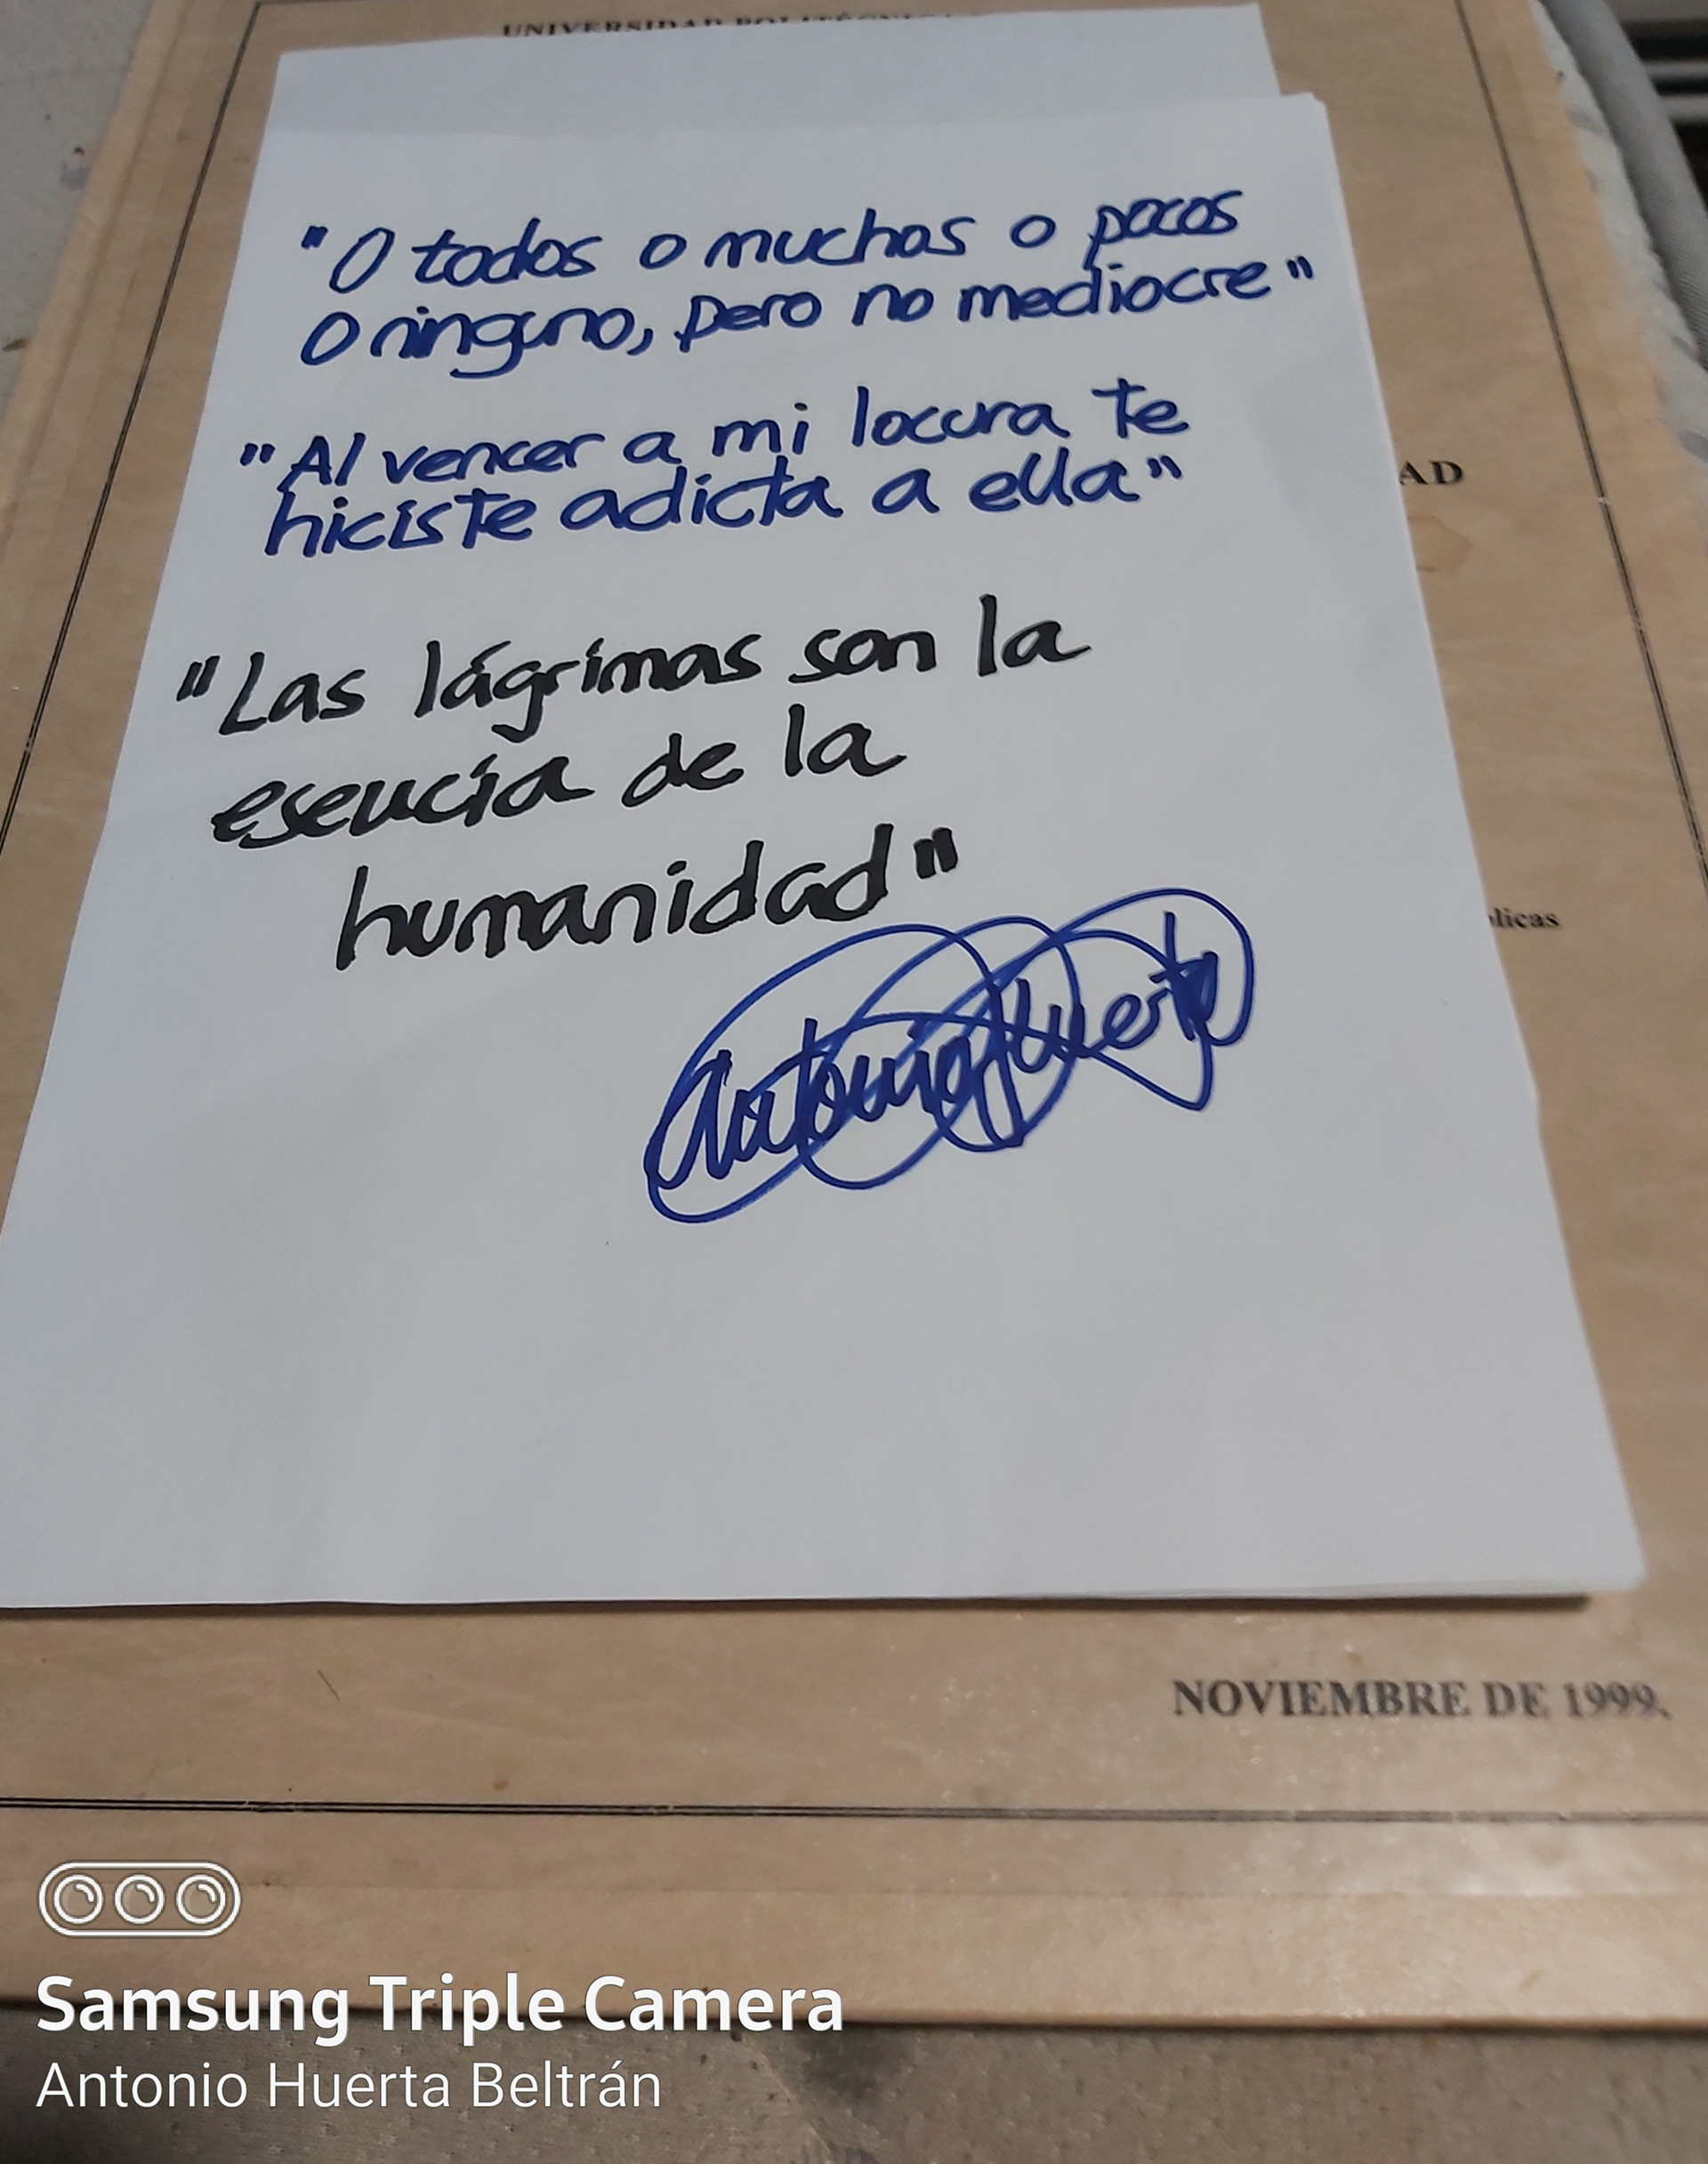 UNIVERSIDAD POLITÉCNICA
"O todos o muchos o pocos
o ninguno, pero no mediocre"
"Al vencer a mi locura te
hiciste adicta a ella"
AD
"Las lágrimas son la
esencia de la
humanidad"
licas
Antonio Huerta
NOVIEMBRE DE 1999.
Samsung Triple Camera
Antonio Huerta Beltrán